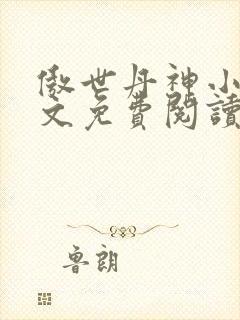 傲世丹神小
文免費閱讀
魯朗